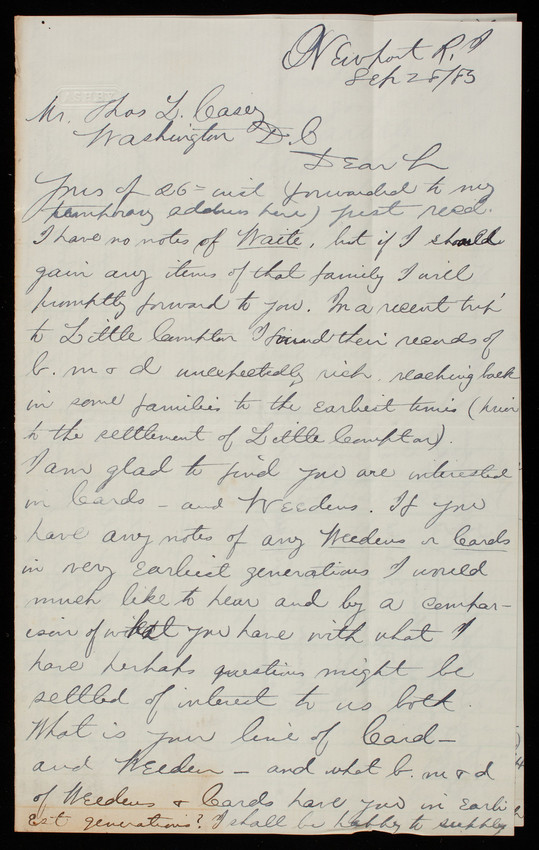 Newport R. I
Sep 28/85
Mr. Thos L. Casey
Washington D. C
Dear Sr
Yours of 26= inst (forwarded to my
temporary address here) just recd.
I have no notes of Waite, but if I should
gain any items of that family I will
promptly forward to you. In a recent trip
to Little Compton I found their records of
b. m & d unexpectedly rich, reaching back
in some families to the earliest times (prior
to the settlement of Little Compton).
I am glad to find you are interested
in Cards - and Weedens. If you
have any notes of any Weedens or Cards
in very earliest generations I would
much like to hear and by a compar-
ison of what you have with what I
have perhaps questions might be
settled of interest to us both.
What is your line of Card -
and Weeden - and what b. m & d
of Weedens & Cards have you in Earli
Est generations? I shall be happy to supply